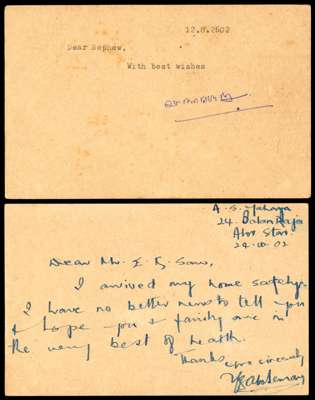 12.8.2602
Dear Nephew,
With best wishes
A. S. Yahaya
24. Jalan Raja
Alor Star.
24.10.02
Dear Mr. E. G. Saw,
I arrived my home safely.
I have no better news to tell you
& hope you & family are in
the very best of health.
Thanks
yours sincerely